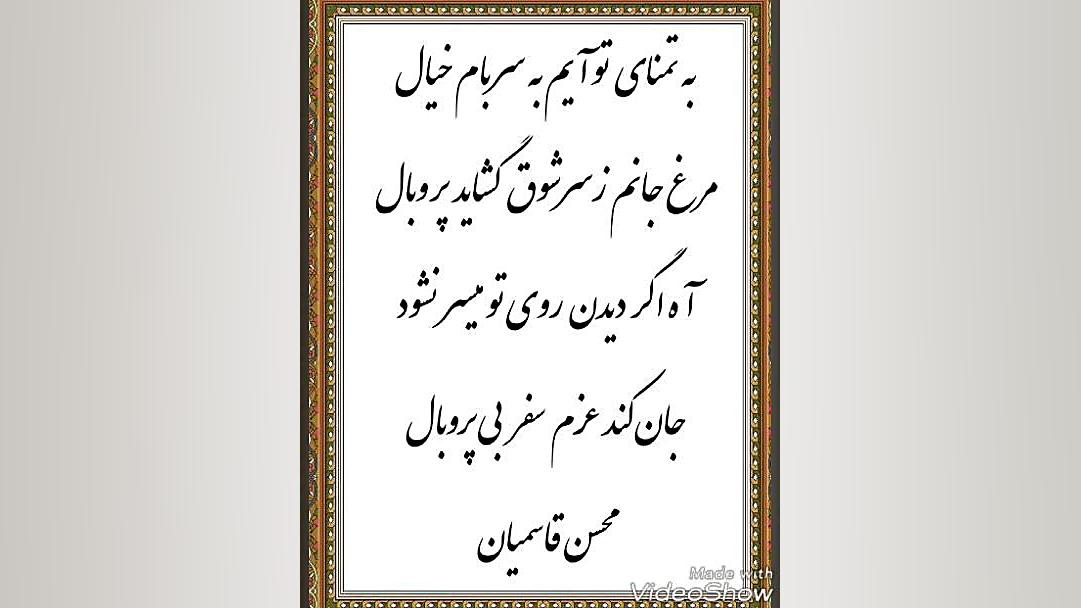 به تمنای تو آیم به سر بام خیال
مرغ جانم ز سر شوق گشاید پر و بال
آه اگر دیدن روی تو میسر نشود
جان کند عزم سفر بی پر و بال
محسن قاسمیان
Made with
VideoShow